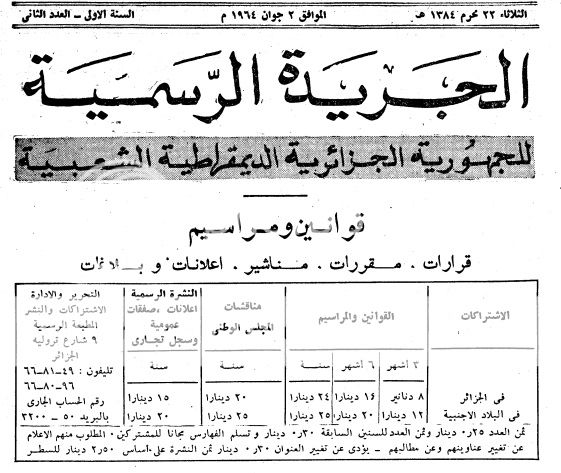 الثلاثاء ٢٢ محرم ١٣٨٤ هـ الموافق ٢ جوان ١٩٦٤ م السنة الاولى - العدد الثاني
الجريدة الرسمية
للجمهورية الجزائرية الديمقراطية الشعبية
قوانين ومراسيم
قرارات . مقررات . مناشير . اعلانات و بلاغات
الاشتراكات
القوانين والمراسيم
٣ أشهر ٦ أشهر سنة
مناقشات
المجلس الوطني
سنة
النشرة الرسمية
اعلانات ،صفقات
عمومية
وسجل تجارى
سنة
فى الجزائر ٨ دنانير ١٦ دينارا ٢٤ دينارا ٢٠ دينارا ١٥ دينارا
فى البلاد الاجنبية ١٢ دينارا ٢٠ دينارا ٢٥ دينارا ٢٥ دينارا ٢٠ دينارا
التحرير والادارة
الاشتراكات والنشر
المطبعة الرسمية
٩ شارع تروليه
الجزائر
تليفون : ٤٩-٨١-٦٦
٩٦-٨٠-٦٦
رقم الحساب الجارى
بالبريد ٥٠ - ٣٢٠٠
ثمن العدد ٠٫٢٥ دينار وثمن العدد للسنين السابقة ٠٫٣٠ دينار و تسلم الفهارس مجانا للمشتركين . المطلوب منهم الاعلام
عن تغيير عناوينهم وعن مطالبهم - يؤدى عن تغيير العنوان ٠٫٣٠ دينار ثمن النشرة على أساس ٢٫٥٠ دينار للسطر